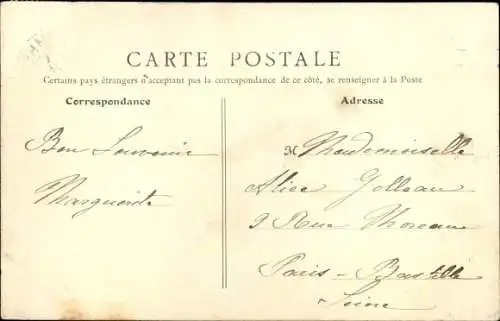 CARTE POSTALE
Certains pays étrangers n'acceptant pas la correspondance de ce côté, se renseigner à la Poste
Correspondance
Adresse
Bon Souvenir
Marguerite
M Mademoiselle
Alice Golleau
9 Rue Moreau
Paris - Bastille
Seine